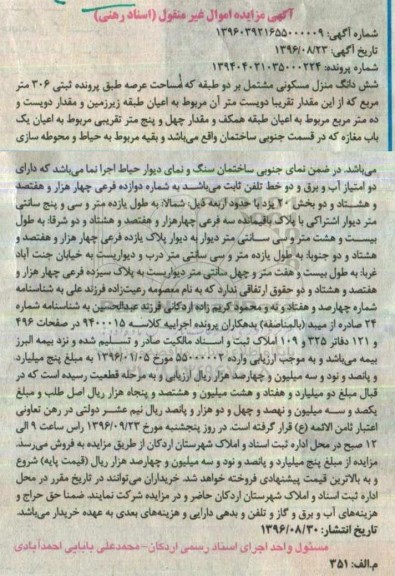 آگهی مزایده اموال غیر منقول (اسناد رهنی)
شماره آگهی: ۱۳۹۶۰۳۹۲۱۶۵۵۰۰۰۰۰۹
تاریخ آگهی: ۱۳۹۶/۰۸/۲۳
شماره پرونده: ۱۳۹۴۰۴۰۲۱۰۳۵۰۰۰۲۲۴
شش دانگ منزل مسکونی مشتمل بر دو طبقه که مساحت عرصه طبق پرونده ثبتی ۳۰۶ متر
مربع که از این مقدار تقریبا دویست متر آن مربوط به اعیان طبقه زیرزمین و مقدار دویست و
ده متر مربع مربوط به اعیان طبقه همکف و مقدار چهل و پنج متر تقریبی مربوط به اعیان یک
باب مغازه که در قسمت جنوبی ساختمان واقع می‌باشد و بقیه مربوط به حیاط و محوطه سازی
می‌باشد. در ضمن نمای جنوبی ساختمان سنگ و نمای دیوار حیاط اجرا نما می‌باشد که دارای
دو امتیاز آب و برق و دو خط تلفن ثابت می‌باشد به شماره دوازده فرعی چهار هزار و هفتصد
و هشتاد و دو بخش ۲۰ یزد با حدود اربعه ذیل: شمالا: به طول یازده متر و سی و پنج سانتی
متر دیوار اشتراکی با پلاک باقیمانده سه فرعی چهارهزار و هفتصد و هشتاد و دو شرقا: به طول
بیست و هشت متر و سی سانتی متر دیوار به دیوار پلاک یازده فرعی چهار هزار و هفتصد و
هشتاد و دو جنوبا: به طول یازده متر و سی سانتی متر درب و دیواریست به خیابان جنت آباد
غربا: به طول بیست و هفت متر و چهل سانتی متر دیواریست به پلاک سیزده فرعی چهار هزار و
هفتصد و هشتاد و دو حقوق ارتفاقی ندارد که به نام معصومه رعیت‌زاده فرزند علی به شناسنامه
شماره چهارصد و هفتاد و نه و محمود کریم زاده اردکانی فرزند عبدالحسین به شناسنامه شماره
۲۴ صادره از میبد (بالمناصفه) بدهکاران پرونده اجراییه کلاسه ۹۴۰۰۰۱۵ در صفحات ۴۹۶
و ۱۲۱ دفاتر ۳۲۵ و ۱۰۹ املاک ثبت و اسناد مالکیت صادر و تسلیم شده و نزد بیمه البرز
بیمه می‌باشد و به موجب ارزیابی وارده ۵۵۰۰۰۰۰۲ مورخ ۱۳۹۶/۰۱/۰۵ به مبلغ پنج میلیارد
و پانصد و نود و سه میلیون و چهارصد هزار ریال ارزیابی و به مرحله قطعیت رسیده است که در
قبال مبلغ دو میلیارد و هفتاد و هشت میلیون و هشتصد و پنجاه هزار ریال اصل طلب و مبلغ
یکصد و سه میلیون و نهصد و چهل و دو هزار و پانصد ریال نیم عشر دولتی در رهن تعاونی
اعتبار ثامن الائمه (ع) قرار گرفته است. در روز پنجشنبه مورخ ۱۳۹۶/۰۹/۲۳ راس ساعت ۹ الی
۱۲ صبح در محل اداره ثبت اسناد و املاک شهرستان اردکان از طریق مزایده به فروش می‌رسد.
مزایده از مبلغ پنج میلیارد و پانصد و نود و سه میلیون و چهارصد هزار ریال (قیمت پایه) شروع و
و به بالاترین قیمت پیشنهادی فروخته خواهد شد. خریداران می‌توانند در تاریخ مقرر در محل
اداره ثبت اسناد و املاک شهرستان اردکان حاضر و در مزایده شرکت نمایند. ضمنا حق حراج و
هزینه‌های آب و برق و گاز و تلفن و بدهی دارایی و هزینه‌های بعدی به عهده خریدار می‌باشد.
تاریخ انتشار: ۱۳۹۶/۰۸/۳۰
مسئول واحد اجرای اسناد رسمی اردکان - محمدعلی بابایی احمدآبادی
م.الف: ۳۵۱